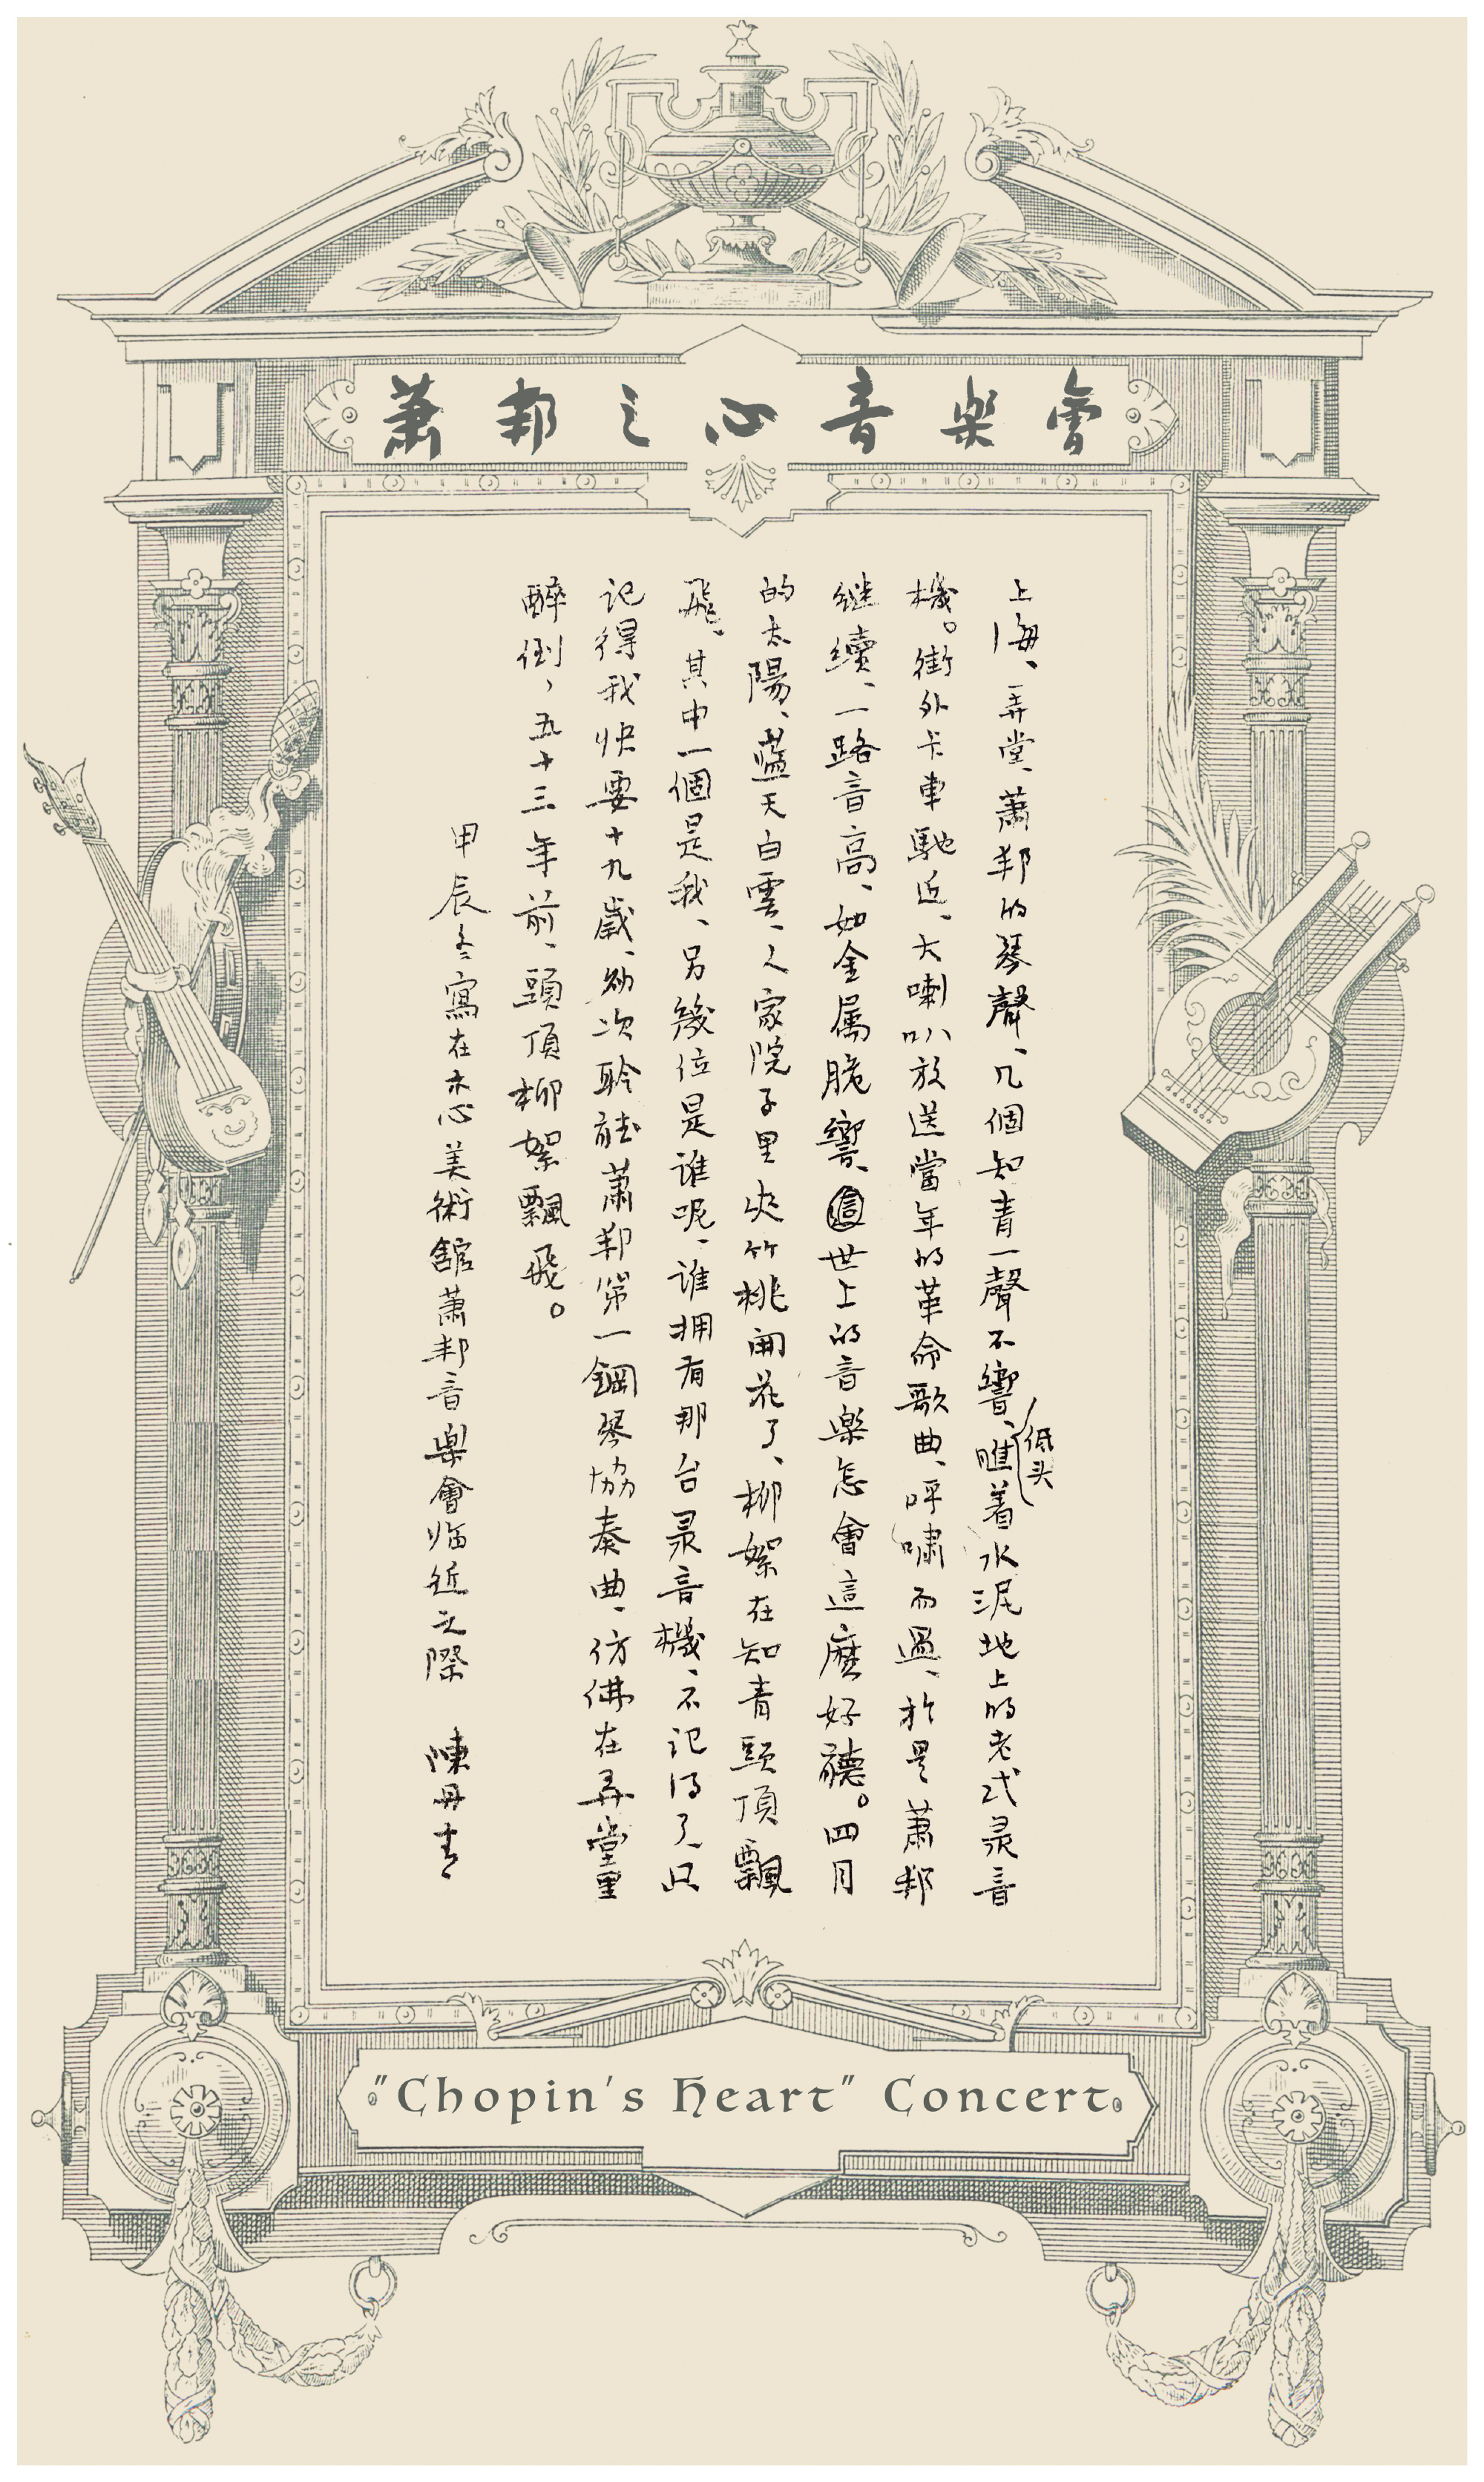 蕭邦之心音樂會
上海、弄堂、蕭邦的琴聲、几個知青一聲不響、低头瞧着水泥地上的老式录音
機。街外卡車馳近、大喇叭放送當年的革命歌曲、呼嘯而過、於是蕭邦
继續、一路音高、如金属脆響、這世上的音樂怎會這麼好聽。四月
的太陽、藍天白雲、人家院子里夾竹桃開花了、柳絮在知青頭頂飄
飛、其中一個是我、另幾位是谁呢、谁拥有那台录音機、不记得了、只
记得我快要十九歲、初次聆聽蕭邦第一鋼琴協奏曲、仿佛在弄堂里
醉倒，五十三年前、頭頂柳絮飄飛。
甲辰冬寫在木心美術館蕭邦音樂會临近之際 陳丹青
"Chopin's Heart" Concert